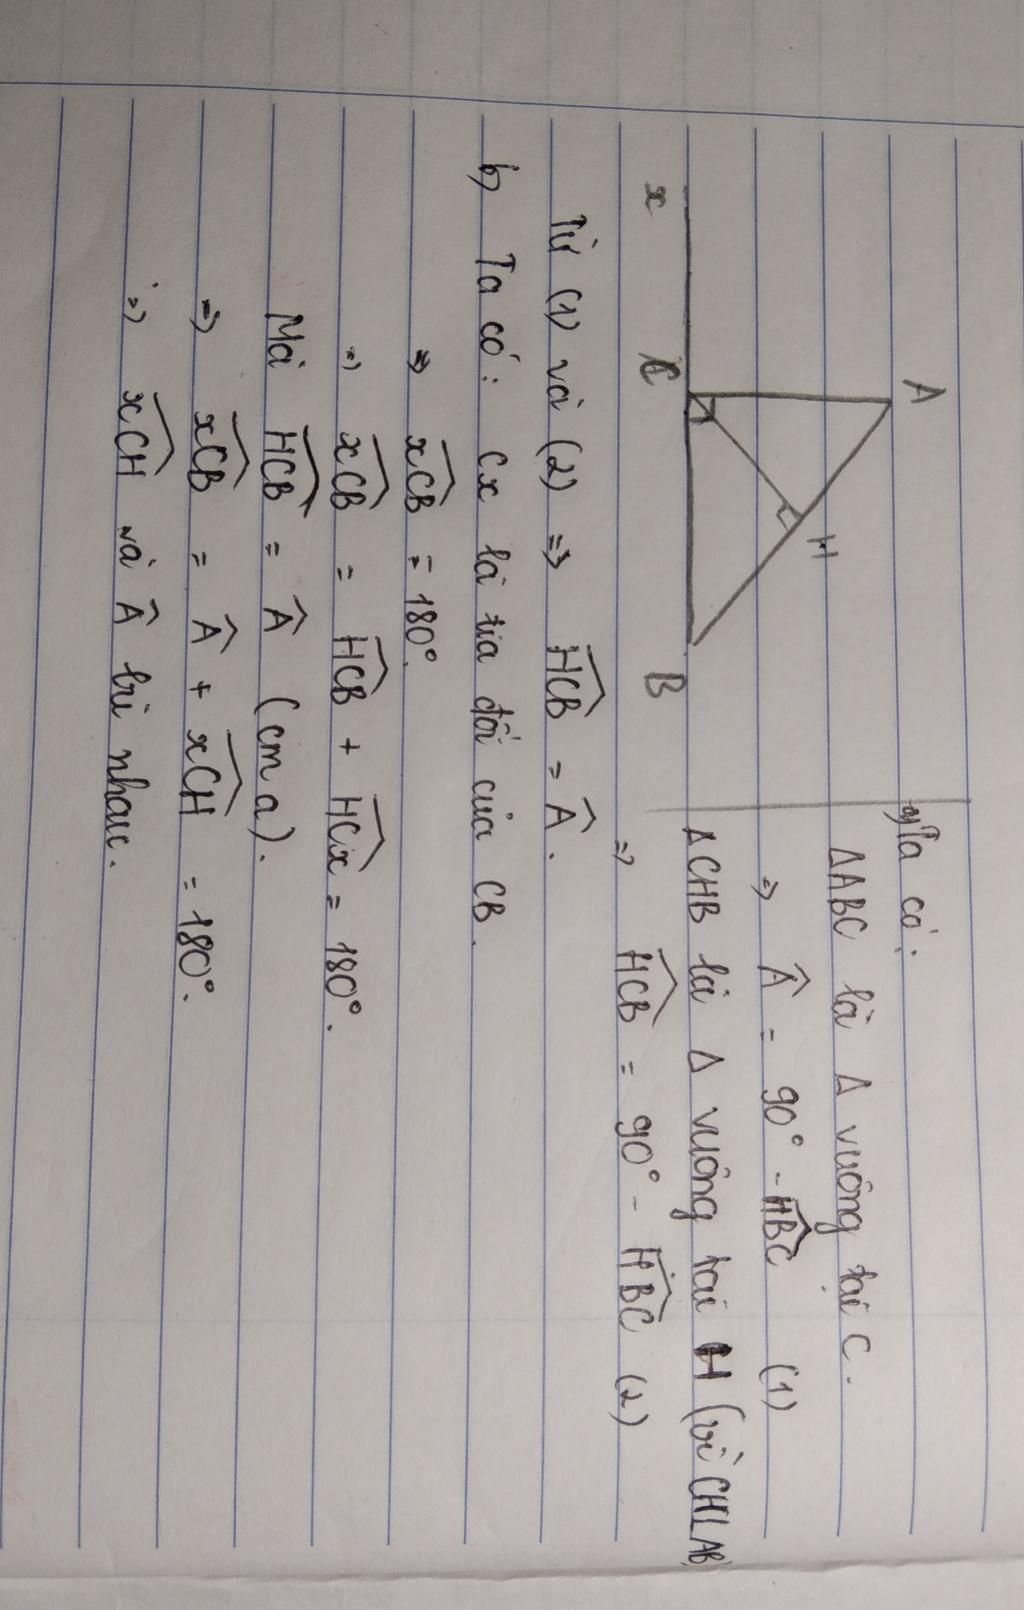 A
H
x
C
B
a) Ta có:
ΔABC là Δ vuông tại C.
=> Â = 90° - HBC^ (1)
ΔCHB là Δ vuông tại H (vì CH⊥AB)
=> HCB^ = 90° - HBC^ (2)
Từ (1) và (2) => HCB^ = Â.
b) Ta có: Cx là tia đối của CB.
=> xCB^ = 180°.
=> xCB^ = HCB^ + HCx^ = 180°.
Mà HCB^ = Â (cm a).
=> xCB^ = Â + xCH^ = 180°.
=> xCH^ và Â bù nhau.